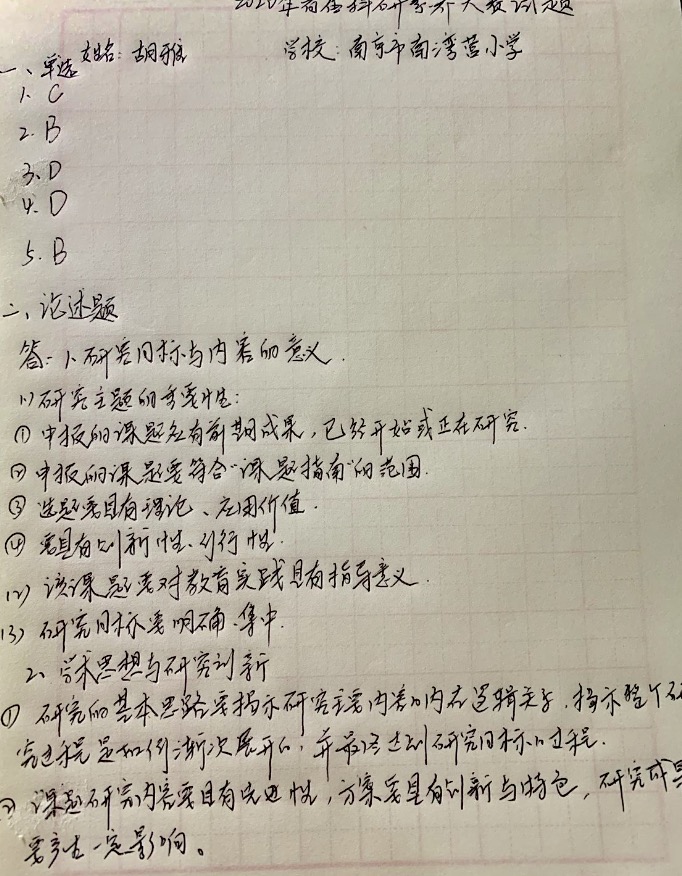 2020年省优科研素养大赛试题
一、单选 姓名: 胡雅 学校: 南京市南湾营小学
1. C
2. B
3. D
4. D
5. B
二、论述题
答: 1、研究目标与内容的意义.
(1) 研究主题的重要性:
① 申报的课题在有前期成果, 已经开始或正在研究.
② 申报的课题要符合“课题指南”的范围.
③ 选题要具有理论、应用价值.
④ 要具有创新性、可行性.
(2) 该课题要对教育实践具有指导意义.
(3) 研究目标要明确、集中.
2、学术思想与研究创新
① 研究的基本思路要揭示研究主要内容的内在逻辑关系, 揭示整个研
究过程是如何渐次展开的, 并最终达到研究目标的过程.
② 课题研究内容要具有先进性, 方案要具有创新与特色, 研究成果
要产生一定影响。